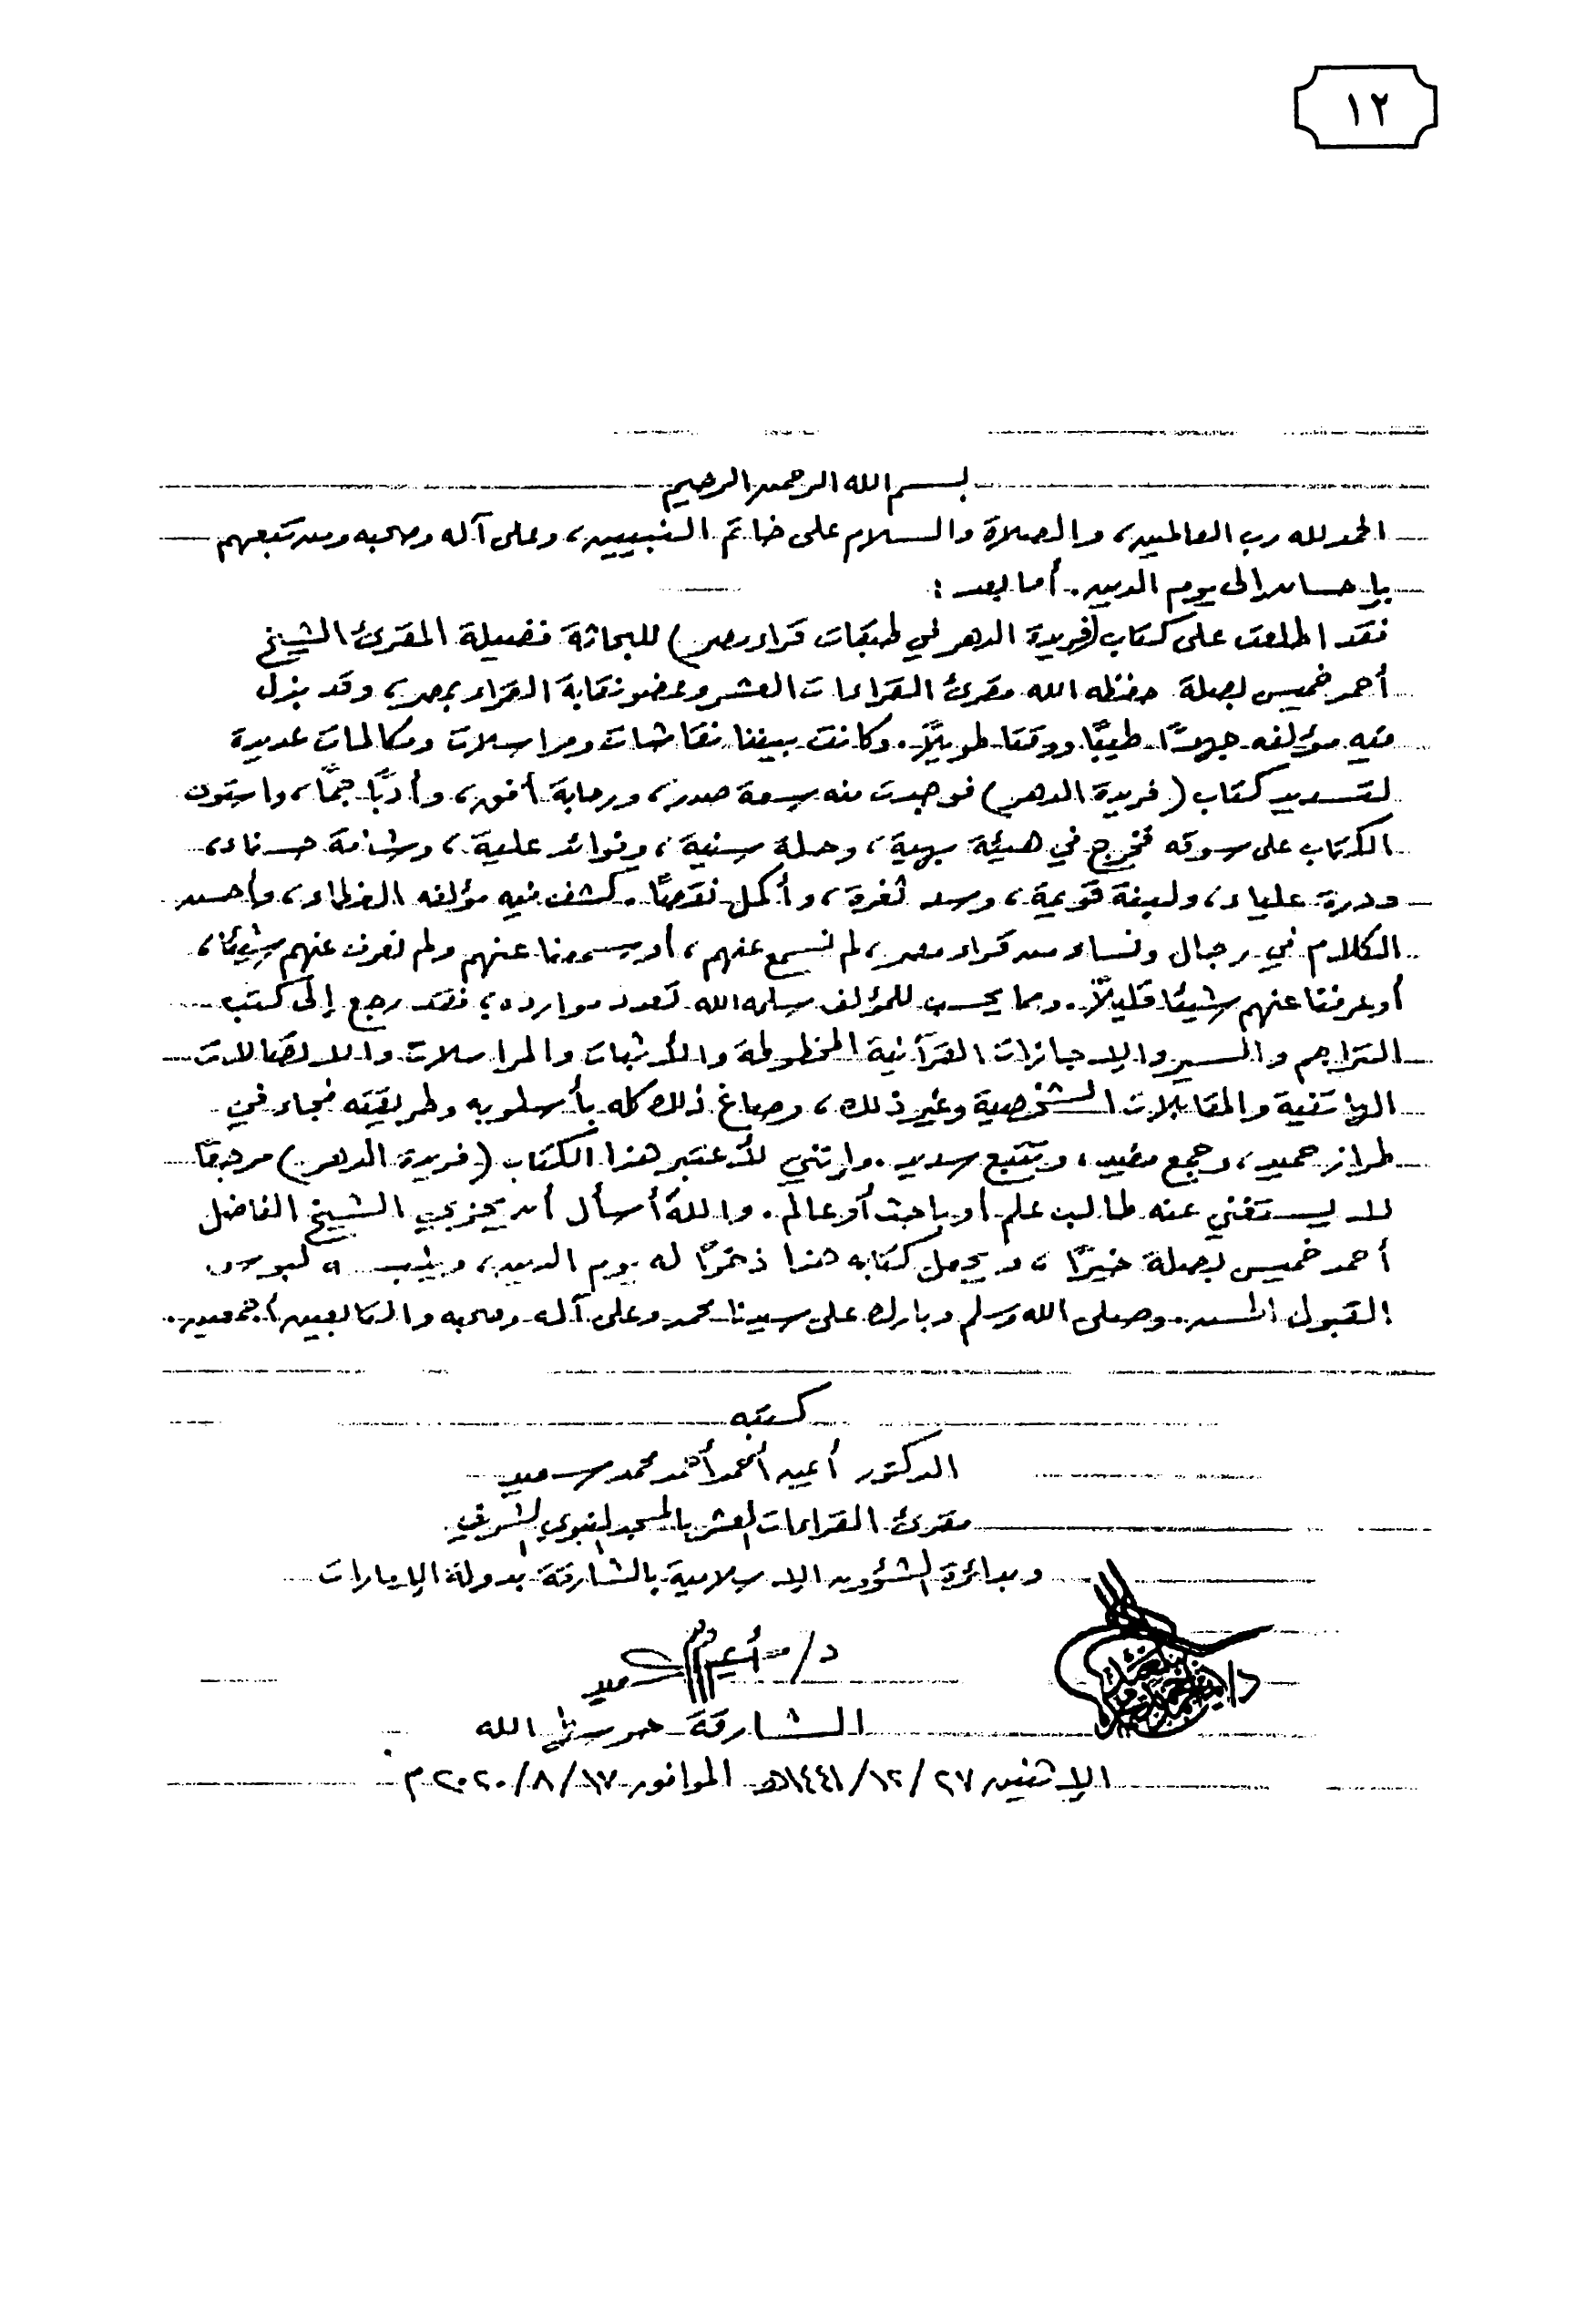 ١٢
بسم الله الرحمن الرحيم
الحمد لله رب العالمين، والصلاة والسلام على خاتم النبيين، وعلى آله وصحبه ومن تبعهم
بإحسان إلى يوم الدين. أما بعد:
فقد اطلعت على كتاب (فريدة الدهر في طبقات قراء مصر) للبحاثة فضيلة المقرئ الشيخ
أحمد خميس بصلة حفظه الله مقرئ القراءات العشر وعضو نقابة القراء بمصر، وقد بذل
فيه مؤلفه جهدًا طيبًا ووقتا طويلًا. وكانت بيننا نقاشات ومراسلات ومكالمات عديدة
لتسديد كتاب (فريدة الدهر) فوجدت منه سعة صدر، ورحابة أفق، وأدبًا جمًّا، واستوى
الكتاب على سوقه فخرج في هيئة بهية، وحلة سنية، وفوائد علية، وشامة حسناء،
ودرة علياء، ولبنة قويمة، وسد ثغرة، وأكمل نقصًا. كشف فيه مؤلفه الغطاء، وأحسن
الكلام في رجال ونساء من قراء مصر، لم نسمع عنهم، أو سمعنا عنهم ولم نعرف عنهم شيئًا،
أو عرفنا عنهم شيئًا قليلًا. ومما يحسب للمؤلف سلمه الله تعدد موارده؛ فقد رجع إلى كتب
التراجم والسير والإجازات القرآنية المخطوطة والأثبات والمراسلات والاتصالات
الهاتفية والمقابلات الشخصية وغير ذلك، وصاغ ذلك كله بأسلوبه وطريقته فجاء في
طراز حميد، وجمع مفيد، وتتبع سديد. وإنني لأعتبر هذا الكتاب (فريدة الدهر) مرجعًا
لا يستغني عنه طالب علم أو باحث أو عالم. واللهَ أسأل أن يجزي الشيخ الفاضل
أحمد خميس بصلة خيرًا، ويجعل كتابه هذا ذخرًا له يوم الدين،
القبول الحسن. وصلى الله وسلم وبارك على سيدنا محمد وعلى آله وصحبه والتابعين أجمعين.
كتبه
الدكتور أيمن أحمد أحمد محمد سعيد
مقرئ القراءات العشر بالمسجد النبوي الشريف
وبدائرة الشؤون الإسلامية بالشارقة بدولة الإمارات
د/ أيمن سعيد
الشارقة حرسها الله
الإثنين ٢٧/١٢/١٤٤١هـ الموافق ١٧/٨/٢٠٢٠م